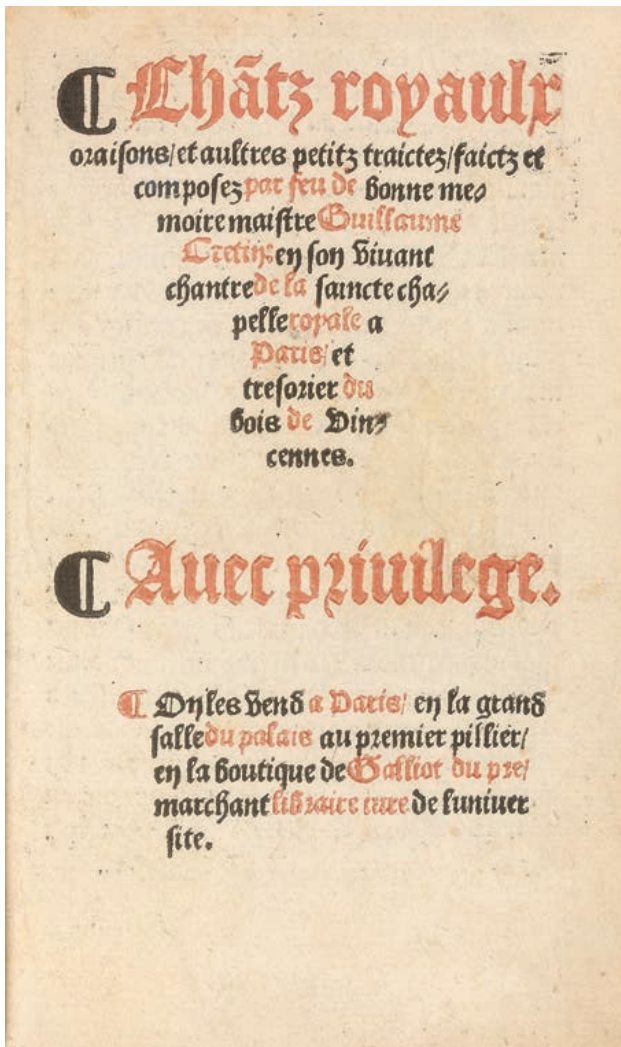 ¶ Chãtz royaulx
oraisons/et aultres petitz traictez/faictz et
composez par feu de bonne me⸗
moire maistre Guillaume
Cretin: en son vivant
chantre de la saincte cha⸗
pelle royale a
Paris/ et
tresorier du
bois de Vin⸗
cennes.
¶ Auec priuilege.
¶ On les vend a Paris/ en la grand
salle du palais au premier pillier/
en la boutique de Galliot du pre/
marchant libraire iure de luniuer
site.